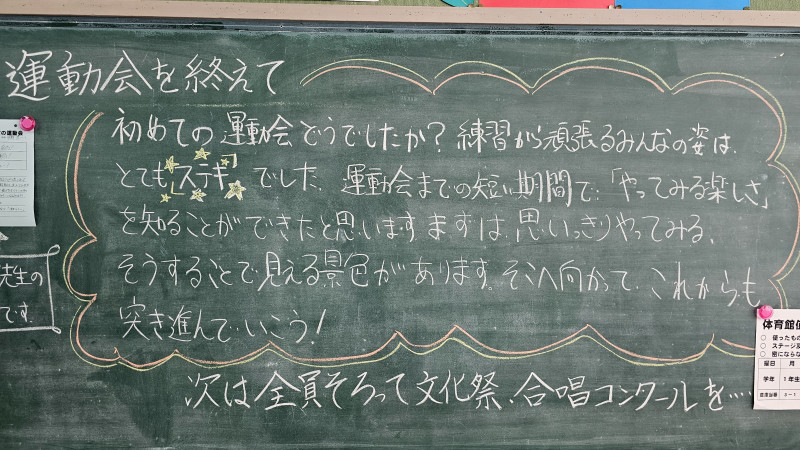 運動会を終えて
初めての運動会どうでしたか？練習から頑張るみんなの姿は、
とても「ステキ」でした。運動会までの短い期間で、「やってみる楽しさ」
を知ることができたと思います。まずは、思いっきりやってみる、
そうすることで見える景色があります。そこへ向かって、これからも
突き進んでいこう！
次は全員そろって文化祭、合唱コンクールを‥‥
先生の
です。
の運動会
体育館
○ 使ったもの
○ ステージ
○ 密にならな
曜日 月
学年 1年生
3-1